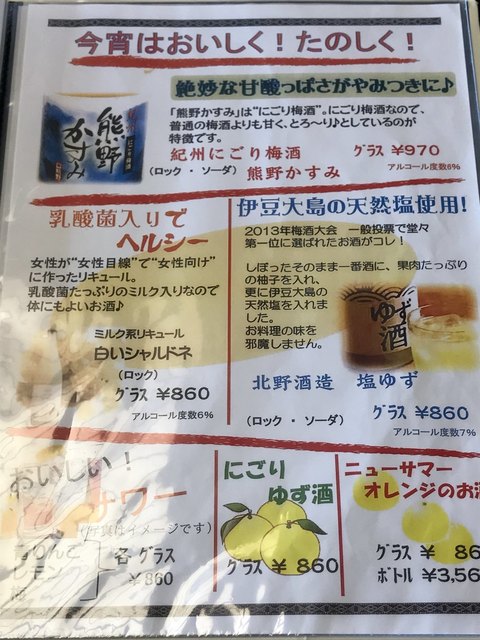 今宵はおいしく！たのしく！
絶妙な甘酸っぱさがやみつきに♪
熊野かすみ
にごり梅酒
「熊野かすみ」は“にごり梅酒”。にごり梅酒なので、
普通の梅酒よりも甘く、とろ～り♪としているのが
特徴です。
紀州にごり梅酒 グラス ¥970
（ロック ・ ソーダ） 熊野かすみ アルコール度数6%
乳酸菌入りで
ヘルシー
女性が“女性目線”で“女性向け”
に作ったリキュール。
乳酸菌たっぷりのミルク入りなので
体にもよいお酒♪
ミルク系リキュール
白いシャルドネ
（ロック）
グラス ¥860
アルコール度数6%
伊豆大島の天然塩使用！
2013年梅酒大会 一般投票で堂々
第一位に選ばれたお酒がコレ！
しぼったそのまま一番酒に、果肉たっぷり
の柚子を入れ、
更に伊豆大島の
天然塩を入れま
した。
お料理の味を
邪魔しません。
ゆず酒
北野酒造 塩ゆず
（ロック ・ ソーダ） グラス ¥860
アルコール度数7%
おいしい！
サワー
（写真はイメージです）
りんご
レモン
各 グラス
¥860
にごり
ゆず酒
グラス ¥ 860
ニューサマー
オレンジのお酒
グラス ¥ 86
ボトル ¥3,56